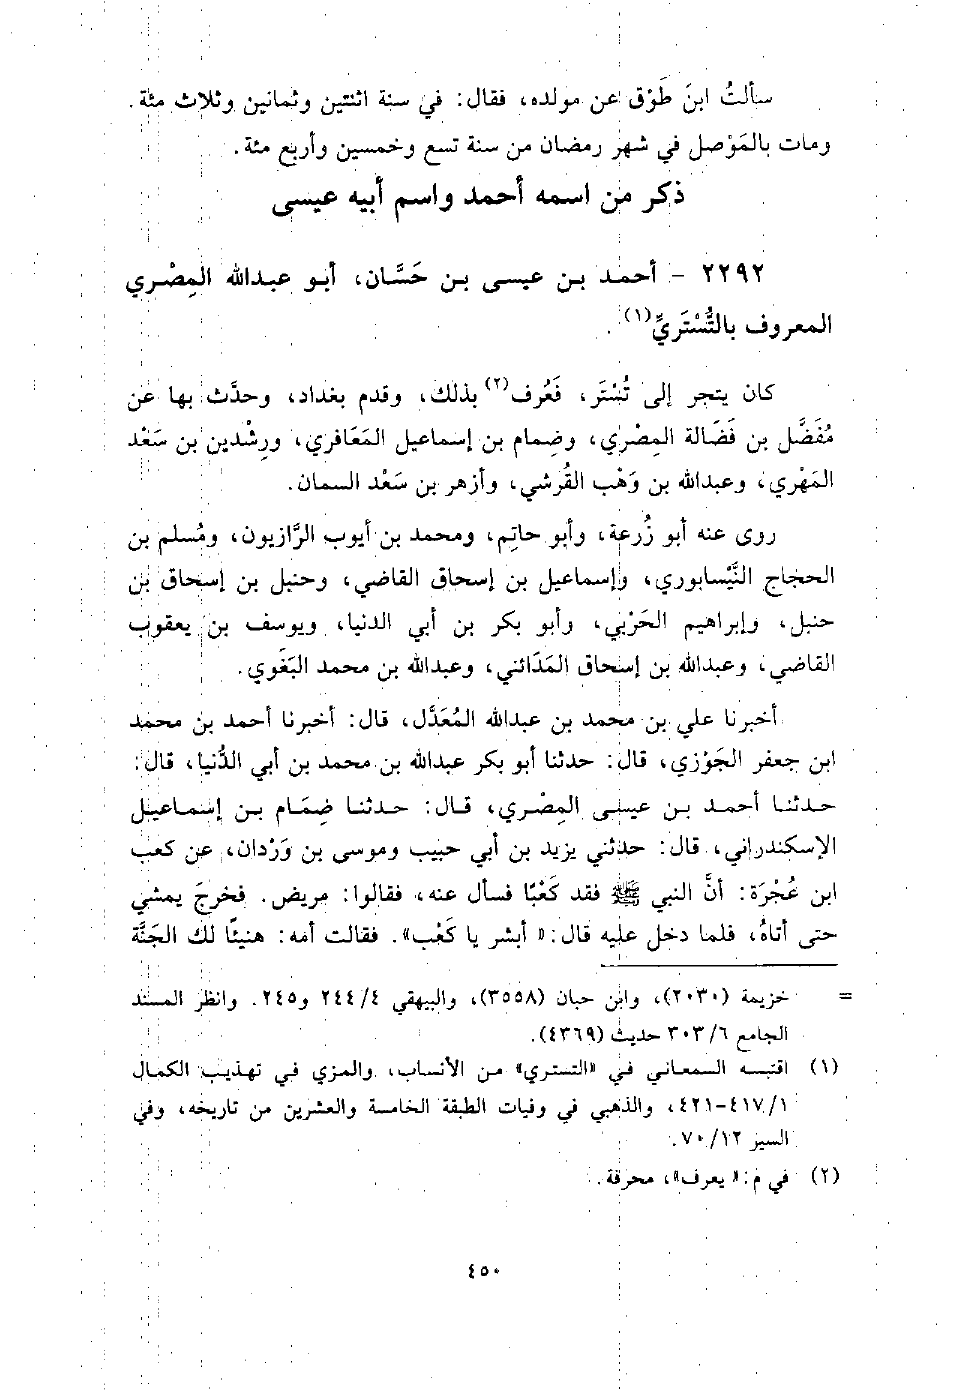 سألتُ ابنَ طَوْق عن مولده، فقال: في سنة اثنتين وثمانين وثلاث مئة.
ومات بالمَوْصل في شهر رمضان من سنة تسع وخمسين وأربع مئة.
ذكر من اسمه أحمد واسم أبيه عيسى
٢٢٩٢ - أحمد بن عيسى بن حَسَّان، أبو عبدالله المِصْري
المعروف بالتُّسْتَريِّ(١).
كان يتجر إلى تُسْتَر، فَعُرف(٢) بذلك، وقدم بغداد، وحدَّث بها عن
مُفَضَّل بن فَضَالة المِصْري، وضِمام بن إسماعيل المَعَافري، ورِشْدين بن سَعْد
المَهْري، وعبدالله بن وَهْب القُرشي، وأزهر بن سَعْد السمان.
روى عنه أبو زُرعة، وأبو حاتِم، ومحمد بن أيوب الرَّازيون، ومُسلم بن
الحجاج النَّيْسابوري، وإسماعيل بن إسحاق القاضي، وحنبل بن إسحاق بن
حنبل، وإبراهيم الحَرْبي، وأبو بكر بن أبي الدنيا، ويوسف بن يعقوب
القاضي، وعبدالله بن إسحاق المَدَائني، وعبدالله بن محمد البَغَوي.
أخبرنا علي بن محمد بن عبدالله المُعَدَّل، قال: أخبرنا أحمد بن محمد
ابن جعفر الجَوْزي، قال: حدثنا أبو بكر عبدالله بن محمد بن أبي الدُّنيا، قال:
حدثنا أحمد بن عيسى المِصْري، قال: حدثنا ضِمَام بن إسماعيل
الإسكندراني، قال: حدثني يزيد بن أبي حبيب وموسى بن وَرْدان، عن كعب
ابن عُجْرَة: أنَّ النبي ﷺ فقد كَعْبًا فسأل عنه، فقالوا: مريض. فخرجَ يمشي
حتى أتاهُ، فلما دخل عليه قال: «أبشر يا كَعْب». فقالت أمه: هنيئًا لك الجَنَّة
= خزيمة (٢٠٣٠)، وابن حبان (٣٥٥٨)، والبيهقي ٢٤٤/٤ و٢٤٥. وانظر المسند
الجامع ٣٠٣/٦ حديث (٤٣٦٩).
(١) اقتبسه السمعاني في «التستري» من الأنساب، والمزي في تهذيب الكمال
٤١٧/١-٤٢١، والذهبي في وفيات الطبقة الخامسة والعشرين من تاريخه، وفي
السير ٧٠/١٢.
(٢) في م: «يعرف»، محرفة.
٤٥٠